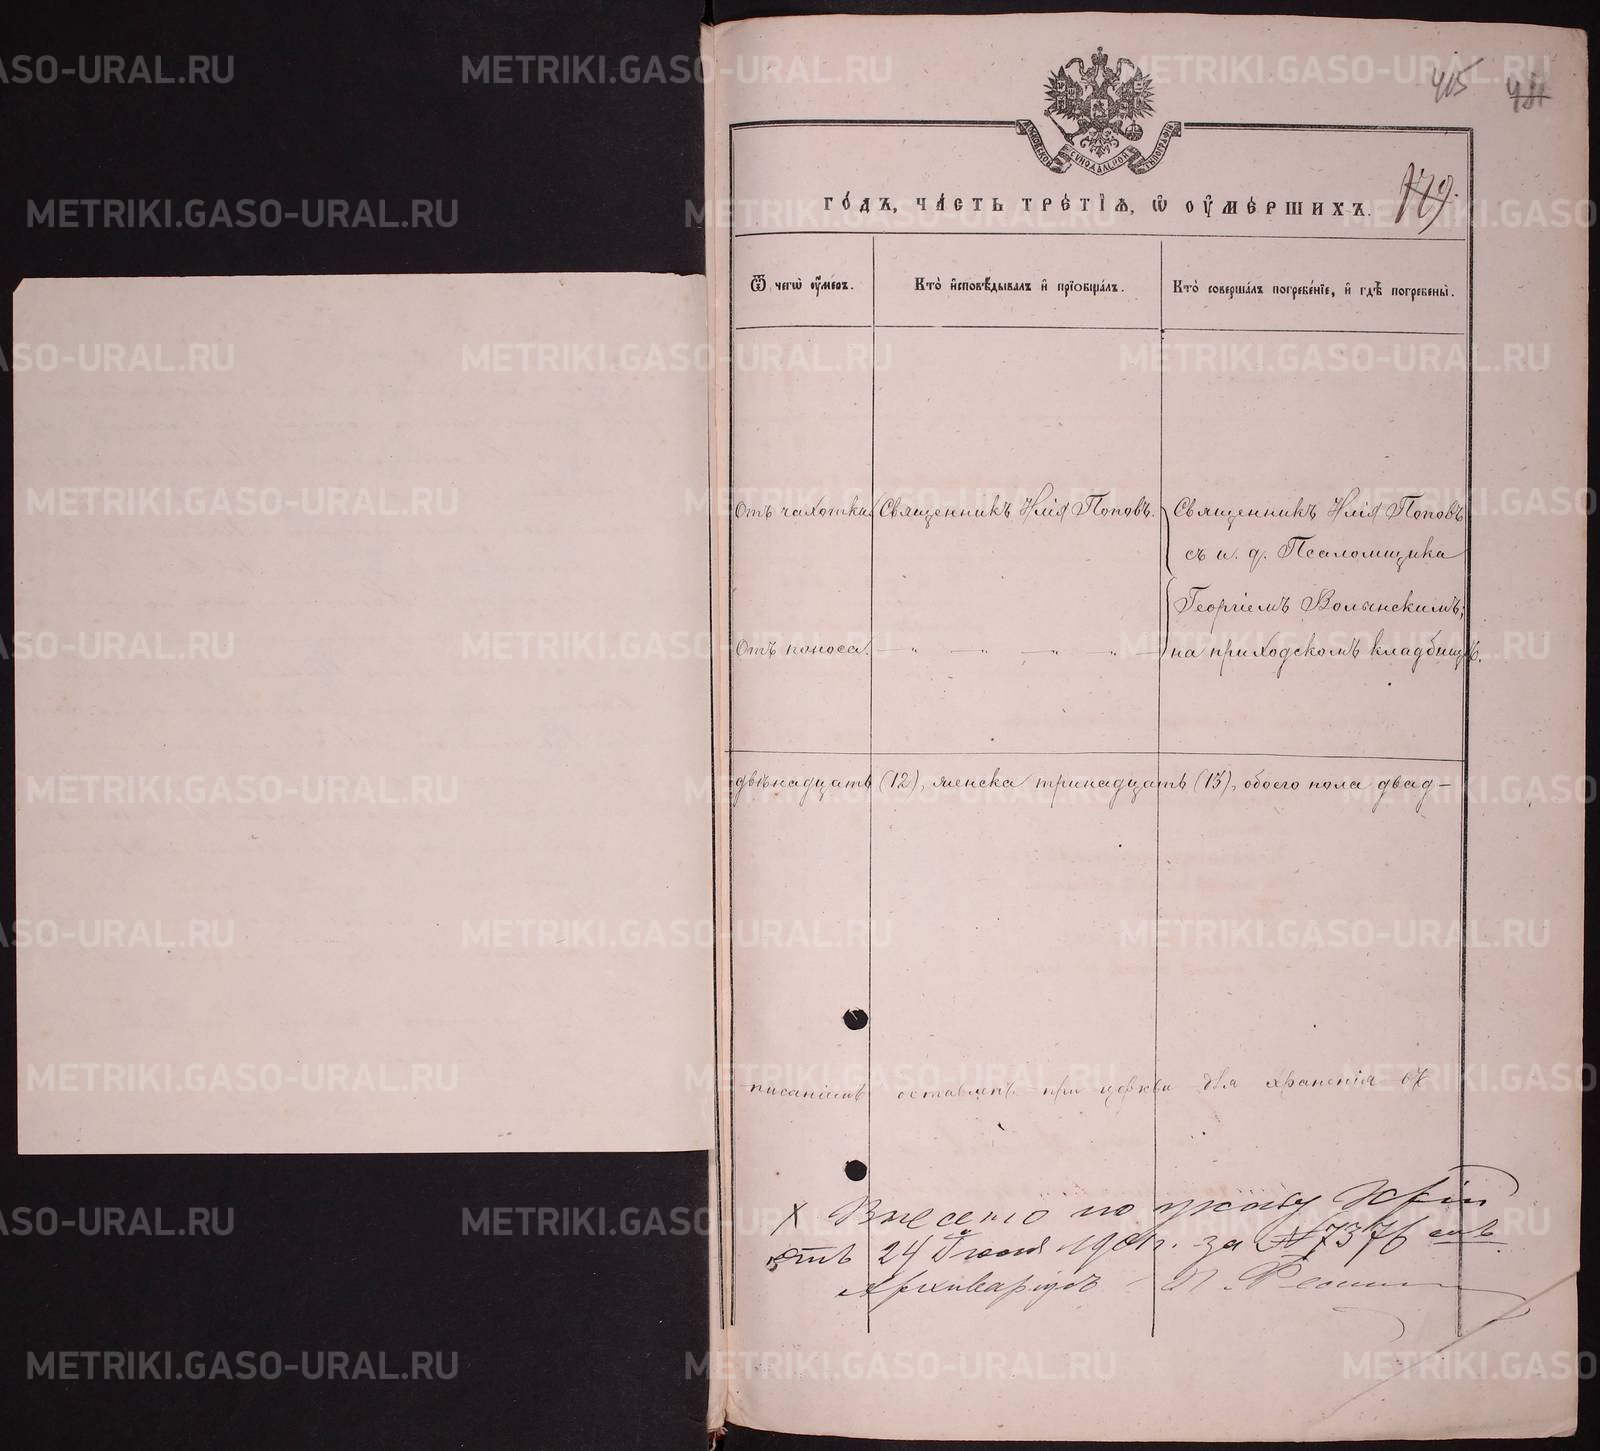 415
МОСКОВСКОЙ СѴНОДАЛЬНОЙ ТИПОГРАФІИ
го́дъ, ча́сть тре́тїѧ, ѡ оу҆ме́ршихъ.
179.
Ѿ чегѡ̀ оу҆́меръ.
Кто̀ и҆сповѣ́дывалъ и҆ прїѻбща́лъ.
Кто̀ соверша́лъ погребе́нїе, и҆ гдѣ̀ погребены̀.
Отъ чахотки.
Священникъ Илія Поповъ.
Священникъ Илія Поповъ
съ и. д. Псаломщика
Георгіемъ Волынскимъ;
Отъ поноса.
на приходскомъ кладбищѣ.
двѣнадцать (12), женска тринадцать (13), обоего пола двад-
писаніемъ оставленъ при церкви для храненія въ
Х Внесено по указу
отъ 24 Іюня 1901 г. за №7376
Архиваріусъ
METRIKI.GASO-URAL.RU